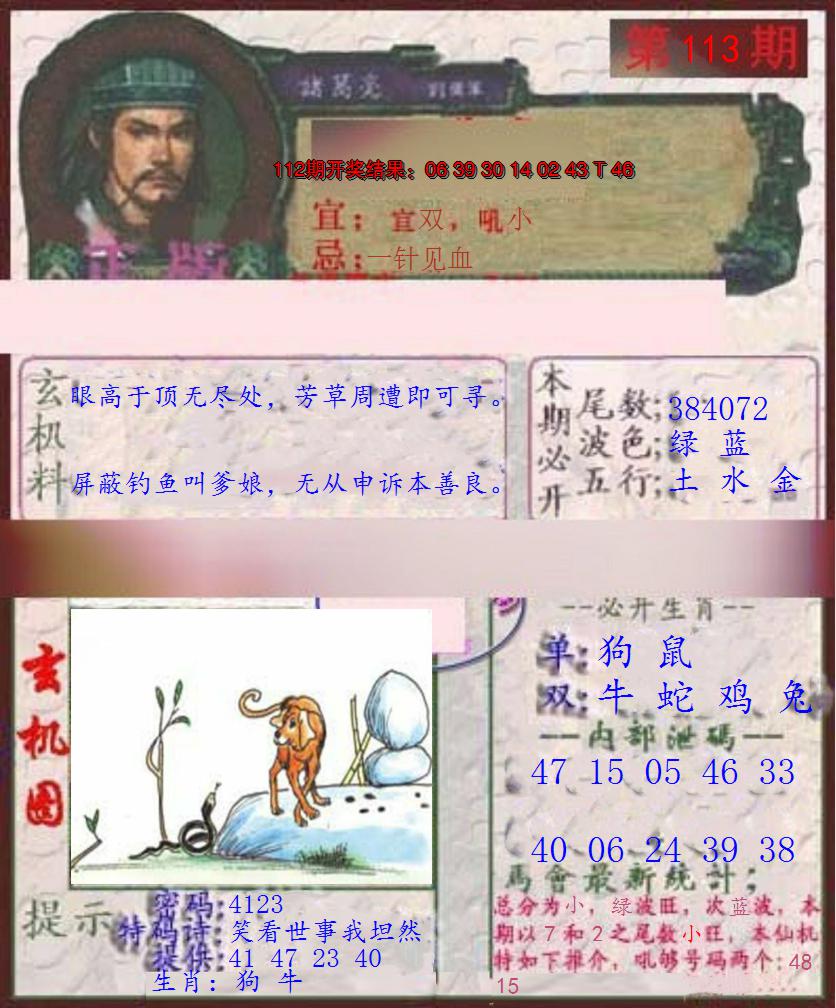 第113期
諸葛亮
112期开奖结果：06 39 30 14 02 43 T 46
宜；宜双，吼小
忌；一针见血
正版
玄机料
眼高于顶无尽处，芳草周遭即可寻。
屏蔽钓鱼叫爹娘，无从申诉本善良。
本期必开
尾数；384072
波色；绿 蓝
五行；土 水 金
玄机图
--必开生肖--
单：狗 鼠
双：牛 蛇 鸡 兔
--内部泄碼--
47 15 05 46 33
40 06 24 39 38
馬會最新統計；
总分为小，绿波旺，次蓝波，本
期以7和2之尾数小旺，本仙机
特如下推介，吼够号码两个：48
15
提示
密码：4123
特码诗：笑看世事我坦然
提供：41 47 23 40
生肖：狗 牛